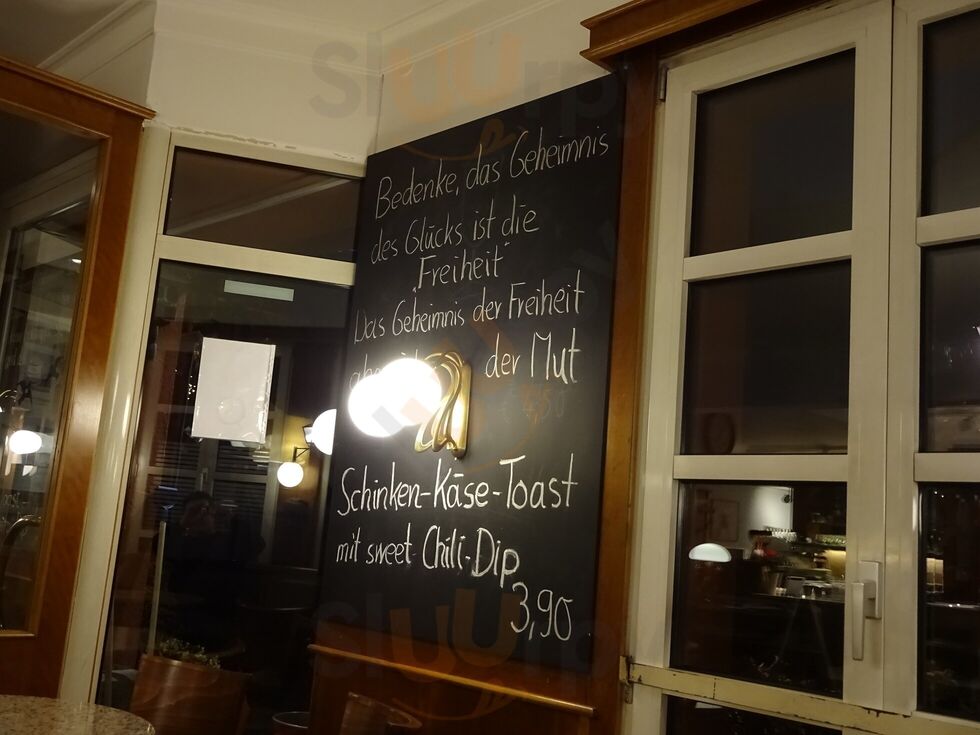 Bedenke, das Geheimnis
des Glücks ist die
"Freiheit"
Das Geheimnis der Freiheit
der Mut
Schinken-Käse-Toast
mit sweet Chili-Dip
3,90
sluurpy
sluurpy